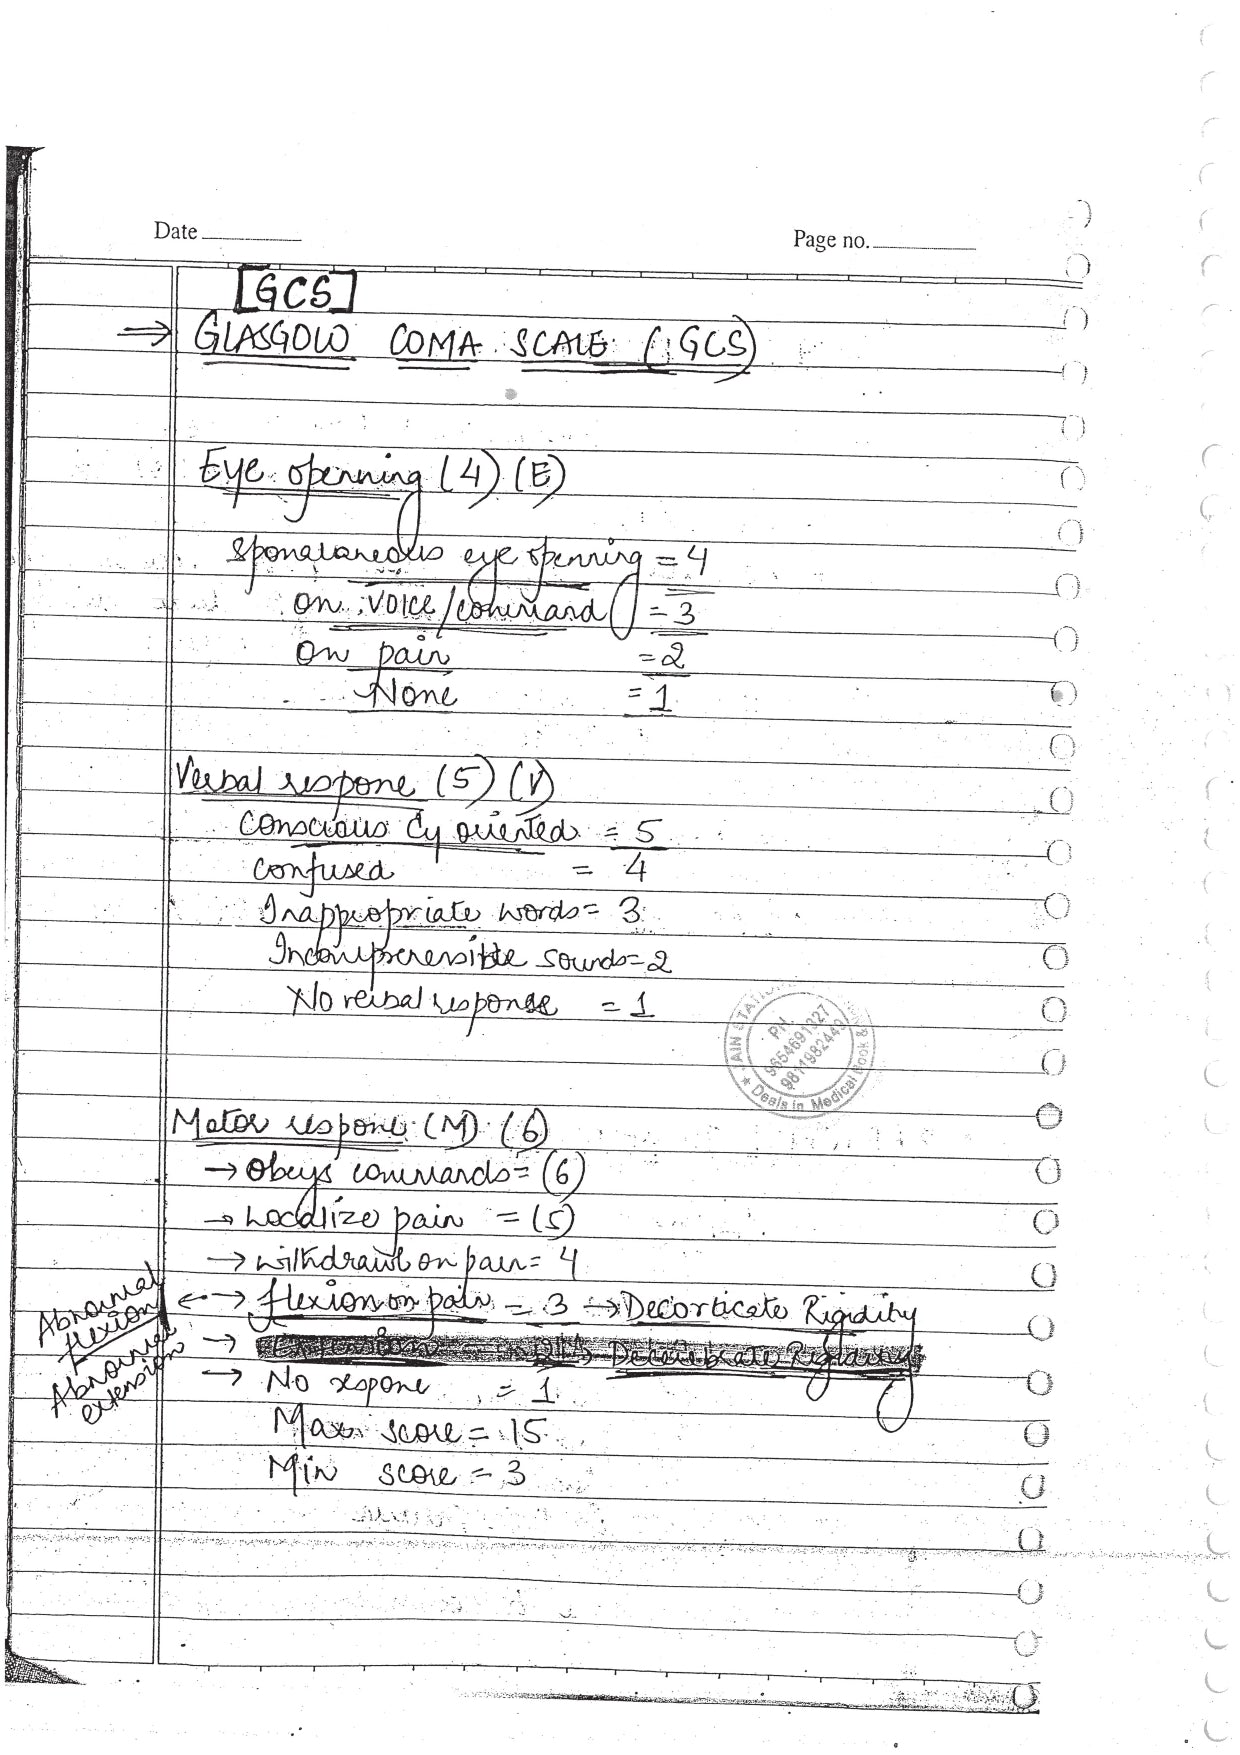 Date
Page no.
[GCS]
⇒ GLASGOW COMA SCALE (GCS)
Eye openning (4) (E)
sponataneous eye openning = 4
on voice/command = 3
on pain = 2
None = 1
Verbal respone (5) (V)
conscious cy oriented = 5
confused = 4
Inappropriate words = 3
Incomprerensible sounds = 2
No verbal response = 1
AIN STATIO
PH.
9654691327
9811982443
★ Deals in Medical Book &
Motor respone (M) (6)
→ Obeys commands = (6)
→ Localize pain = (5)
→ withdrawl on pain = 4
Abnormal flexion ← → flexion on pain = 3 → Decorticate Rigidity
Abnormal extension → Decerebrate Rigidity
→ No respone = 1
Max score = 15
Min score = 3